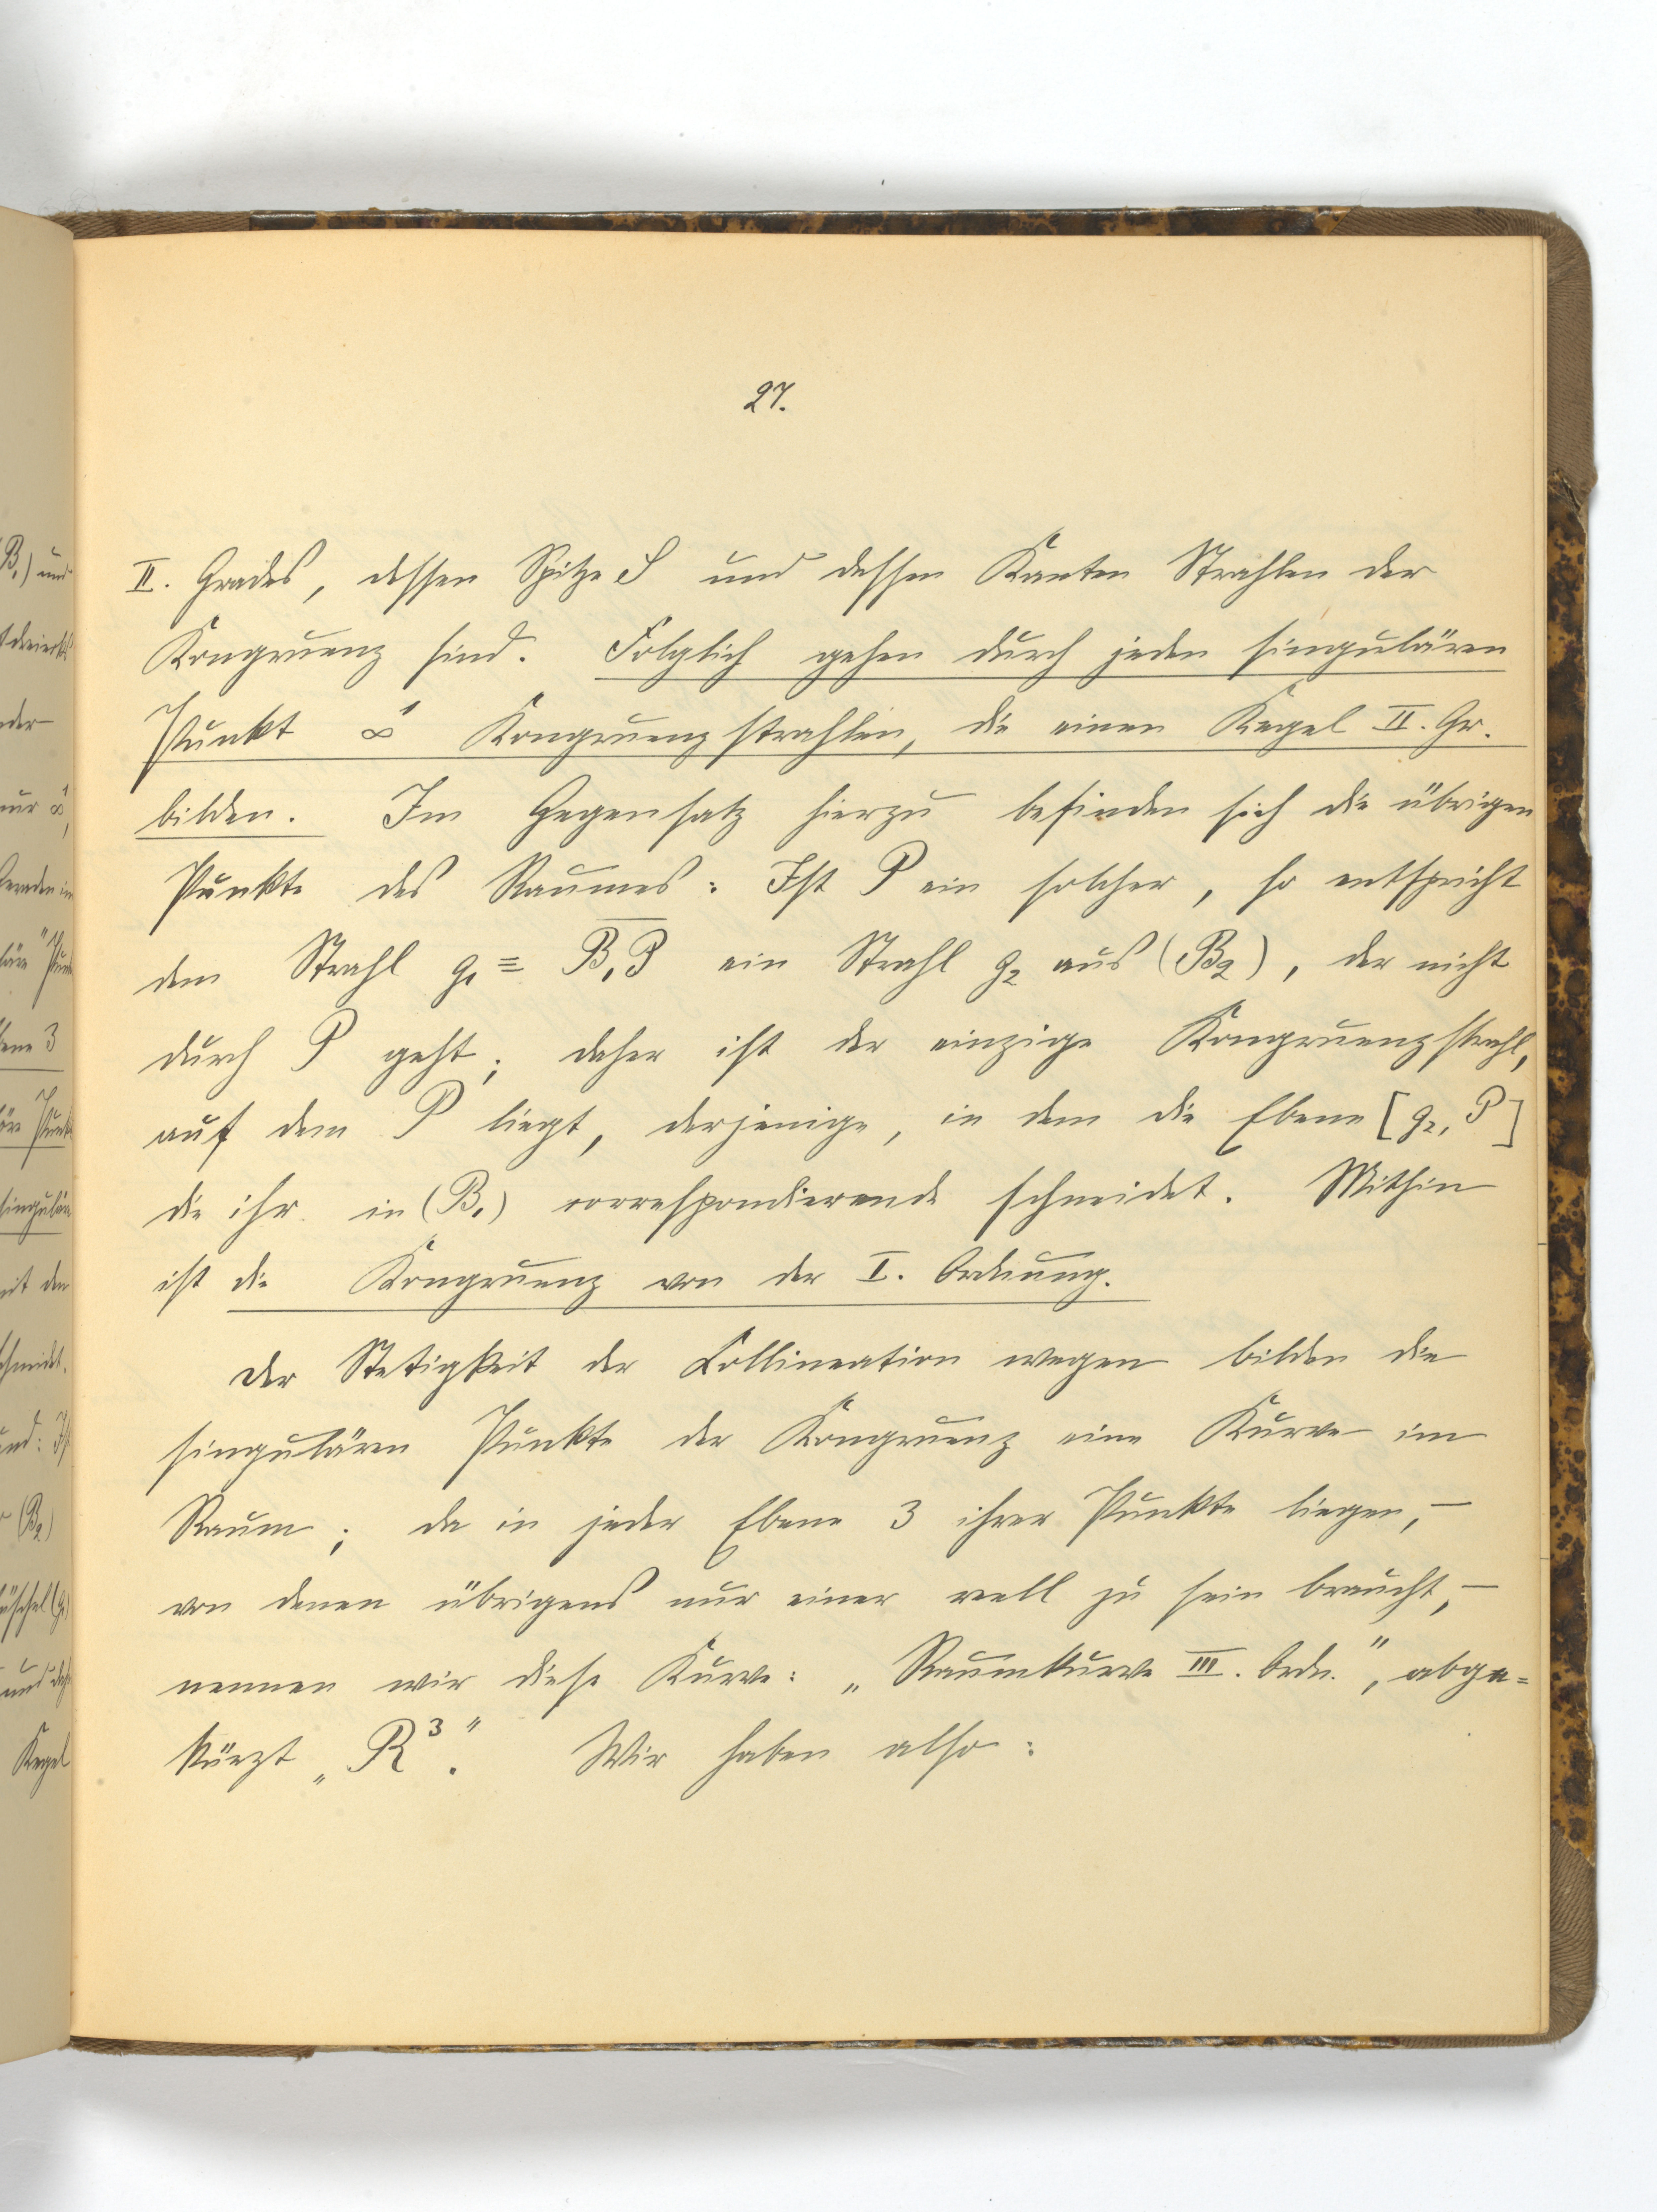 27.
II. Grades, dessen Spitze S und dessen Kanten Strahlen der
Kongruenz sind. Folglich gehen durch jeden singulären
Punkt ∞¹ Kongruenzstrahlen, die einen Kegel II. Gr.
bilden. Im Gegensatz hierzu befinden sich die übrigen
Punkte des Raumes: Ist P ein solcher, so entspricht
dem Strahl g₁ ≡ B₁P ein Strahl g₂ aus (B₂), der nicht
durch P geht; daher ist der einzige Kongruenzstrahl,
auf dem P liegt, derjenige, in dem die Ebene [g₂, P]
die ihr in (B₁) correspondierende schneidet. Mithin
ist die Kongruenz von der I. Ordnung.
Der Stetigkeit der Collineation wegen bilden die
singulären Punkte der Kongruenz eine Kurve im
Raum; da in jeder Ebene 3 ihrer Punkte liegen, –
von denen übrigens nur einer reell zu sein braucht, –
nennen wir diese Kurve: „Raumkurve III. Ordn.", abge=
kürzt „R³". Wir haben also: